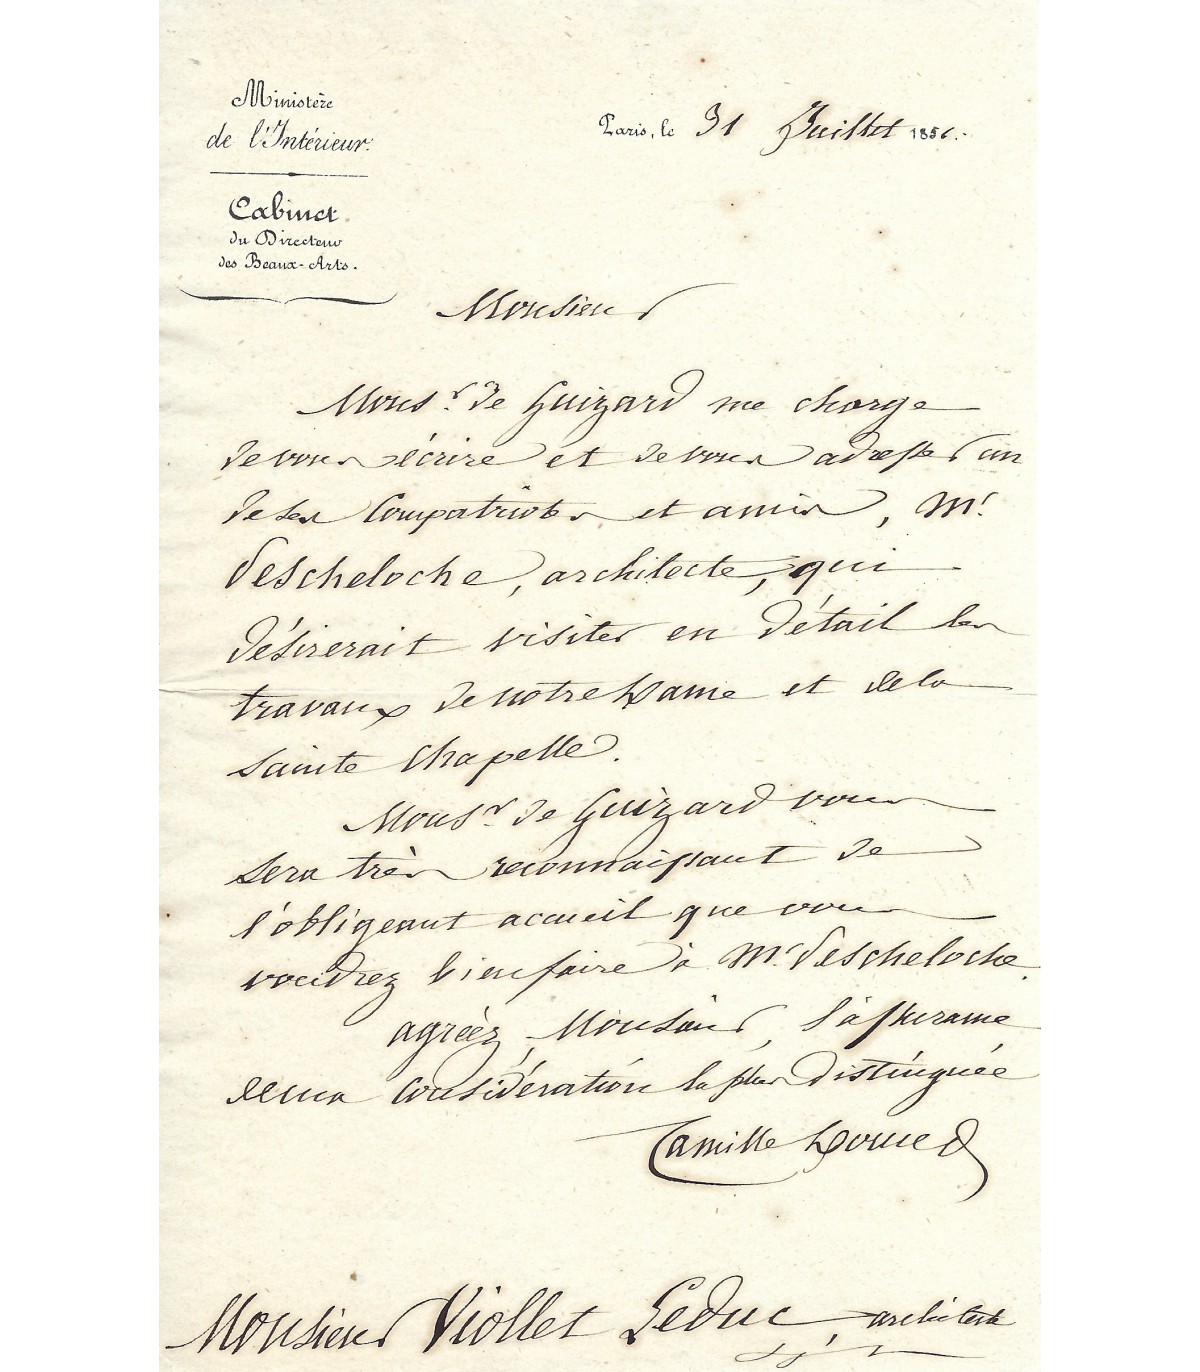 Ministère
de l'Intérieur.
Cabinet
du Directeur
des Beaux-Arts.
Paris, le 31 Juillet 1851.
Monsieur
Mons.r de Guizard me charge
de vous écrire et de vous adresser un
de ses Compatriotes et amis, Mr.
Descheloche, architecte, qui
désirerait visiter en détail les
travaux de notre Dame et de la
sainte Chapelle.
Mons.r de Guizard vous
sera très reconnaissant de
l'obligeant accueil que vous
voudrez bien faire à Mr. Descheloche.
agréez, Monsieur, l'assurance
de ma considération la plus distinguée
Camille
Monsieur Viollet Leduc architecte